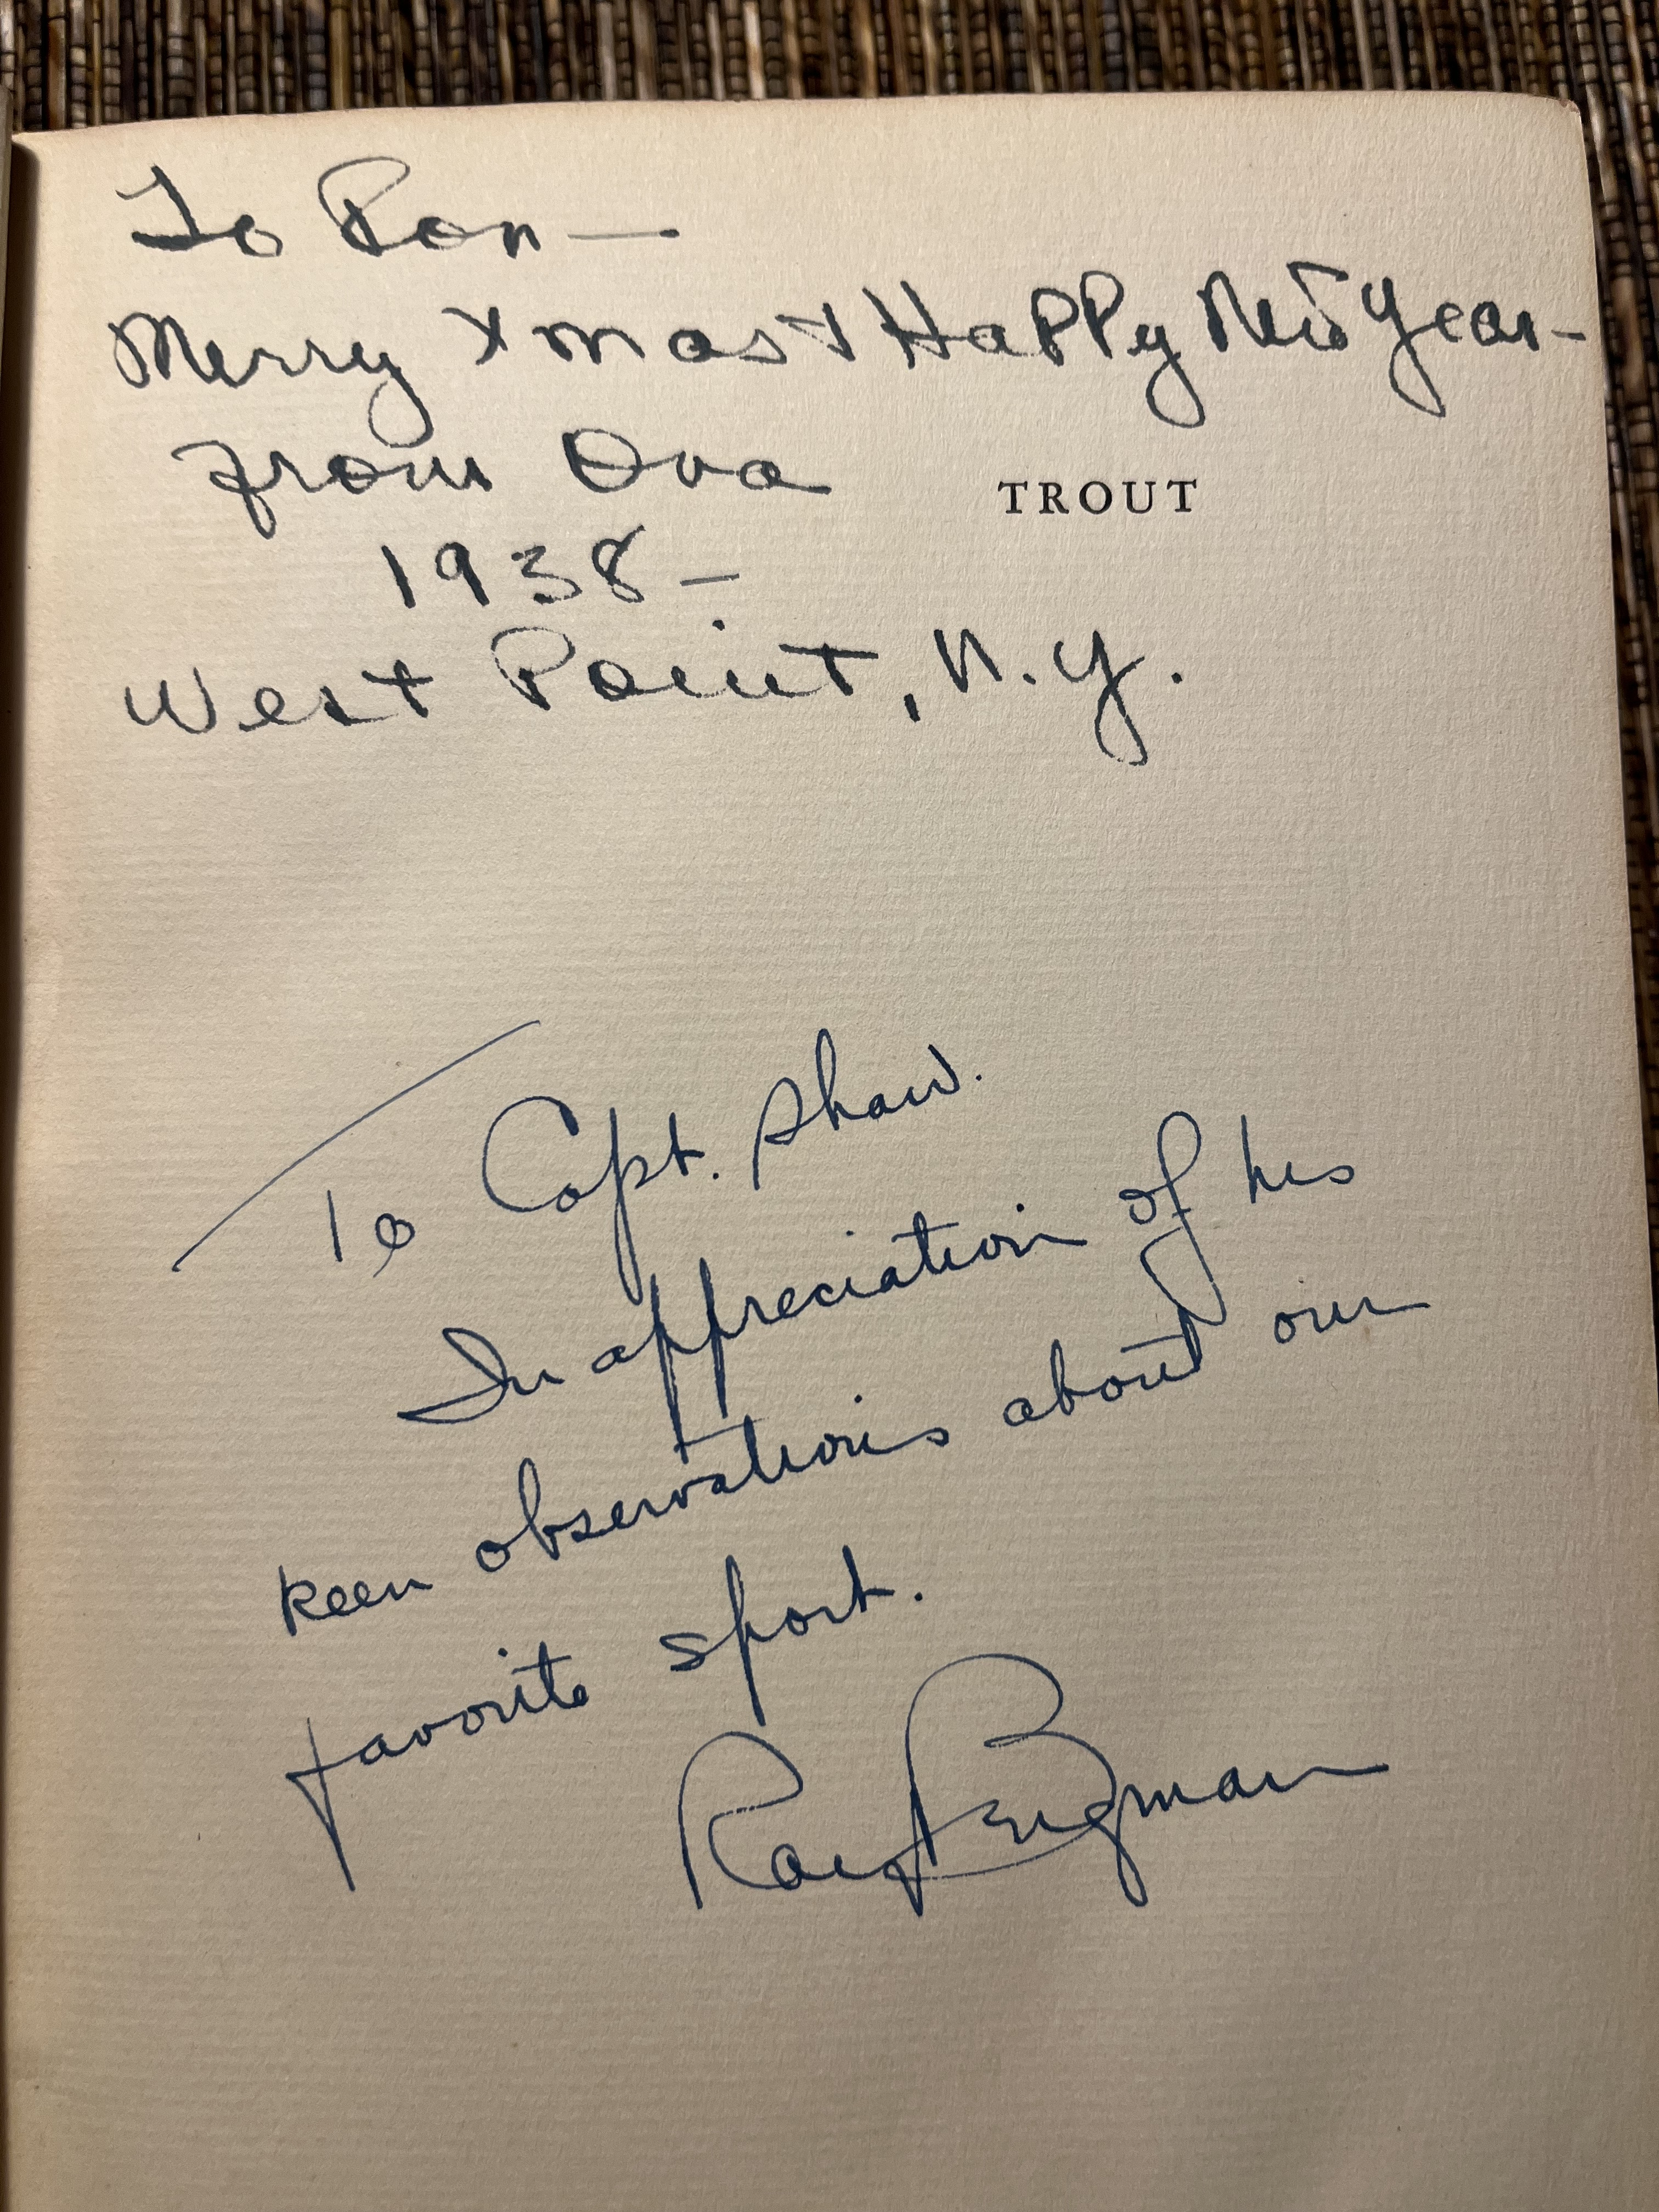 To Ron—
Merry Xmas + Happy New Year—
from Ova
TROUT
1938—
West Point, N.Y.
To Capt. Shaw.
In appreciation of his
keen observations about our
favorite sport.
Ray Bergman